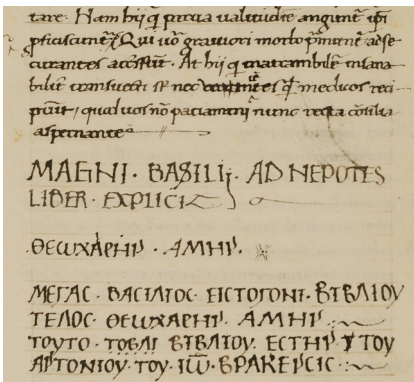 tare. Nam hij q̃ parua ualitudine angunt̃ ip̃i
ꝓficiscunt̃. Qui uo grauiori morbo p̃munt̃ ad se
curantes accersiũt. At hij q̃ insana
bilit̃ se nec q̃ medicos reci-
piũt, quod uos nõ paciamini nunc recta cõsilia
aspernantes
MAGNI · BASILIJ · AD NEPOTES
LIBER · EXPLICIT
·ΘΕΩΧΑΡΗΣ · ΑΜΗΝ·
ΜΕΓΑC · ΒΑCΙΛΙΟC · ΕΙCΤΟΓΟΝΙ · ΒΙΒΛΙΟΥ
ΤΕΛΟC · ΘΕΩΧΑΡΗΣ · ΑΜΗΝ
ΤΟΥΤΟ · ΒΙΒΛΙΟΥ. ΕCΤΗΝ ΤΟΥ
ΑΝΤΟΝΙΟΥ · ΤΟΥ · ΙΩ̅ · ΒΡΑΚΕΡCΙC